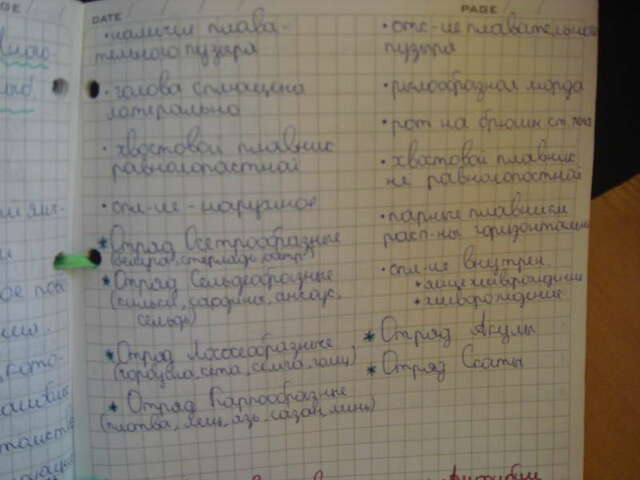 DATE
• наличи плава-
тельного пузыря
• голова сплющена
латерально
• хвостовой плавник
равнолопастной
• опл-ие - наружное
* Отряд Осетрообразные
(белуга, стерлядь, осётр)
* Отряд Сельдеобразные
(килька, сардина, анчоус,
сельдь)
* Отряд Лососеобразные
(горбуша, кета, семга, голец)
* Отряд Карпообразные
(плотва, лещ, язь, сазан, линь)
PAGE
• отс-ие плавательного
пузыря
• рылообразная морда
• рот на брюшн. ст. тела
• хвостовой плавник
не равнолопостной
• парные плавники
расп-ны горизонтально
• опл-ие внутрен.
• яйцеживорождение
• живорождение
* Отряд Акулы
* Отряд Скаты